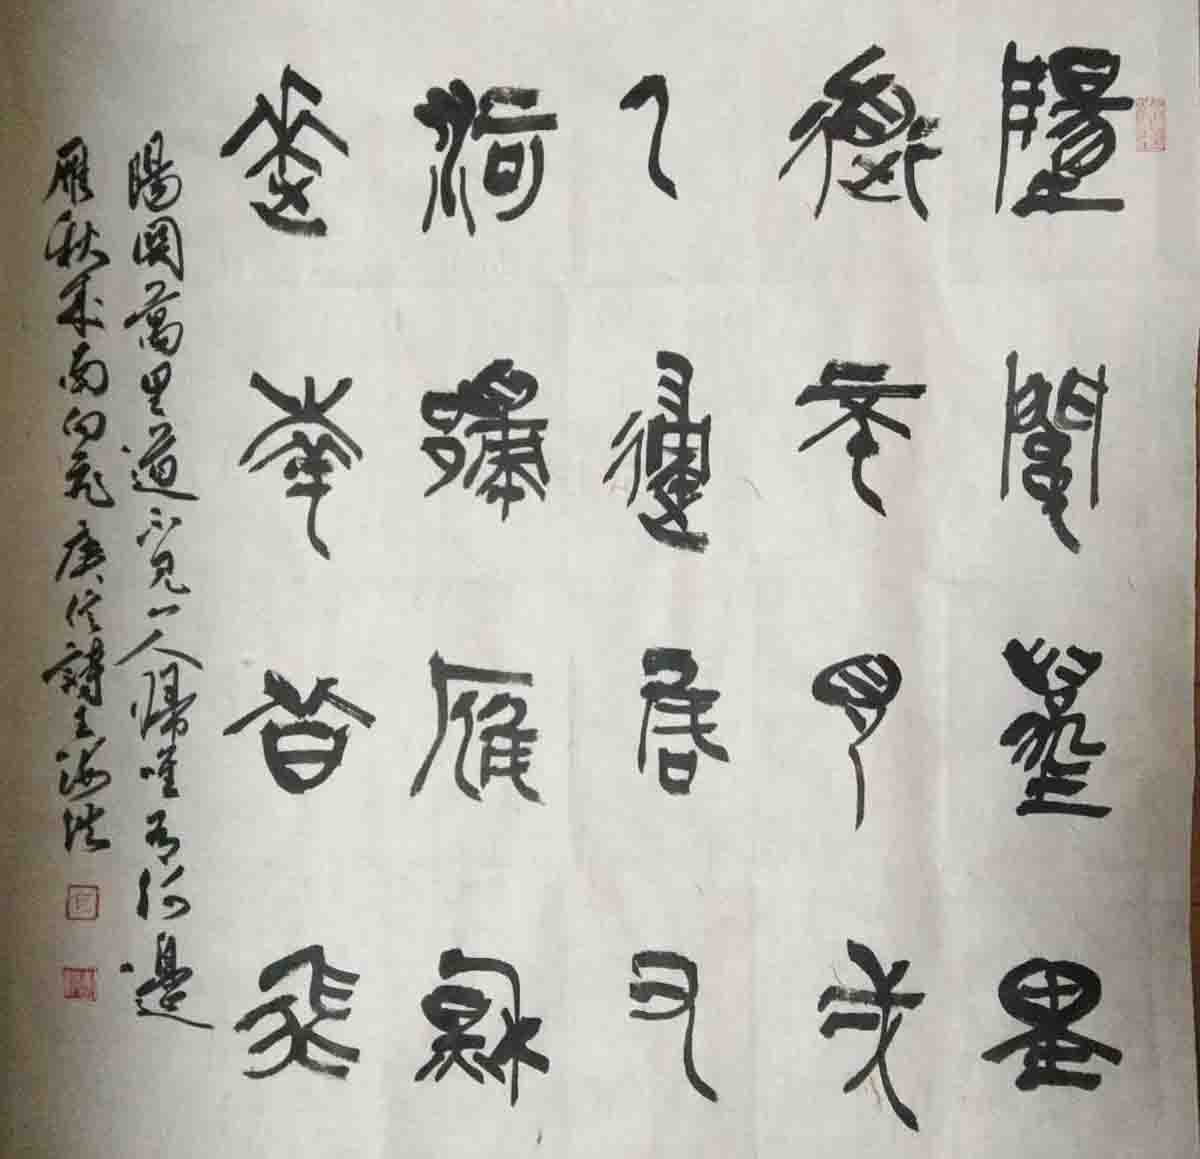 陽關萬里
道不見一
人歸唯有
河邊雁秋
來南向飛
陽関萬里道不見一人歸唯有河邊
雁秋来南向飛庾信詩